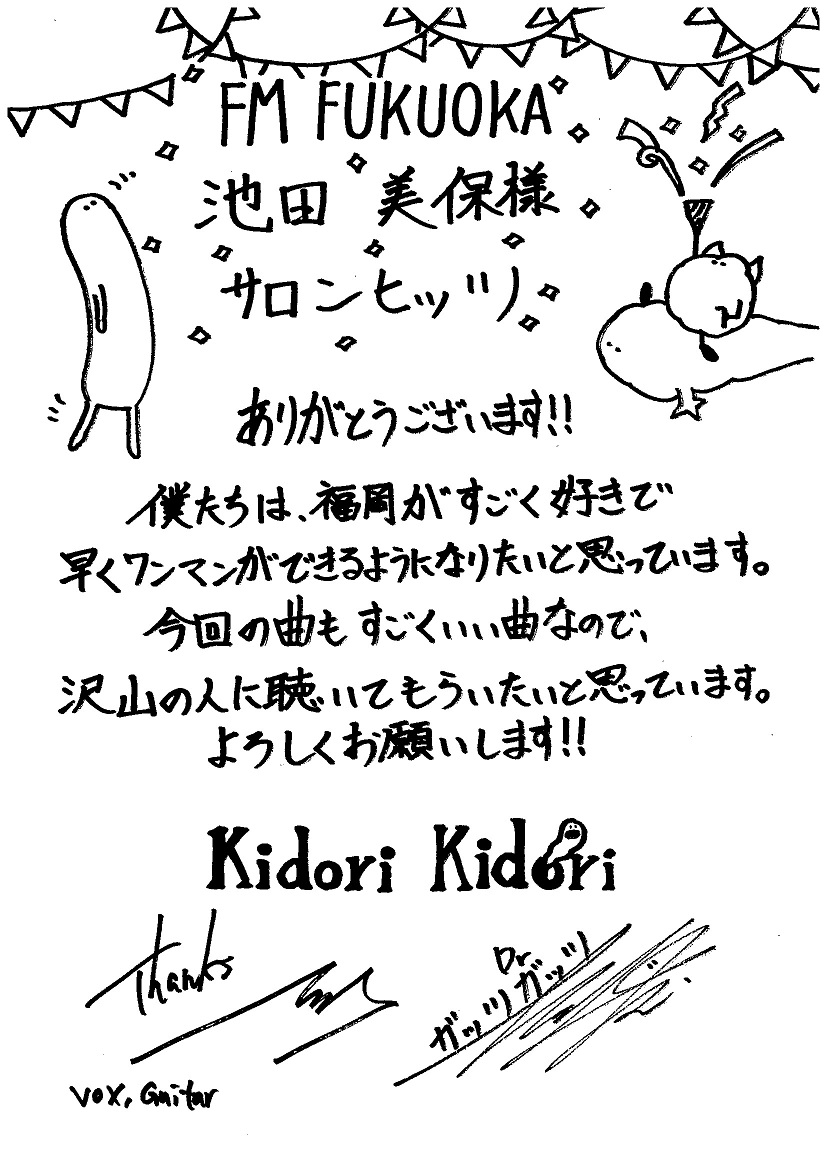 FM FUKUOKA
池田 美保様
サロンヒッツ！
ありがとうございます!!
僕たちは、福岡がすごく好きで
早くワンマンができるようになりたいと思っています。
今回の曲もすごくいい曲なので、
沢山の人に聴いてもらいたいと思っています。
よろしくお願いします!!
Kidori Kidori
Thanks
Dr
ガッツリガッツリ
vox, Guitar